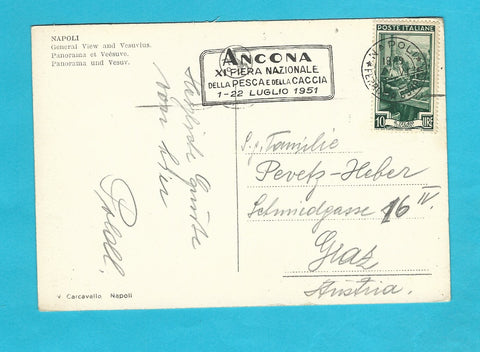 NAPOLI
General View and Vesuvius.
Panorama et Vésuve.
Panorama und Vesuv.
ANCONA
XI FIERA NAZIONALE
DELLA PESCA E DELLA CACCIA
1-22 LUGLIO 1951
POSTE ITALIANE
10 LIRE
NAPOLI
Herzliche Grüße
von hier
S. g. Familie
Pevetz-Heber
Schmiedgasse 16 IV.
Graz
Austria.
Carcavallo Napoli